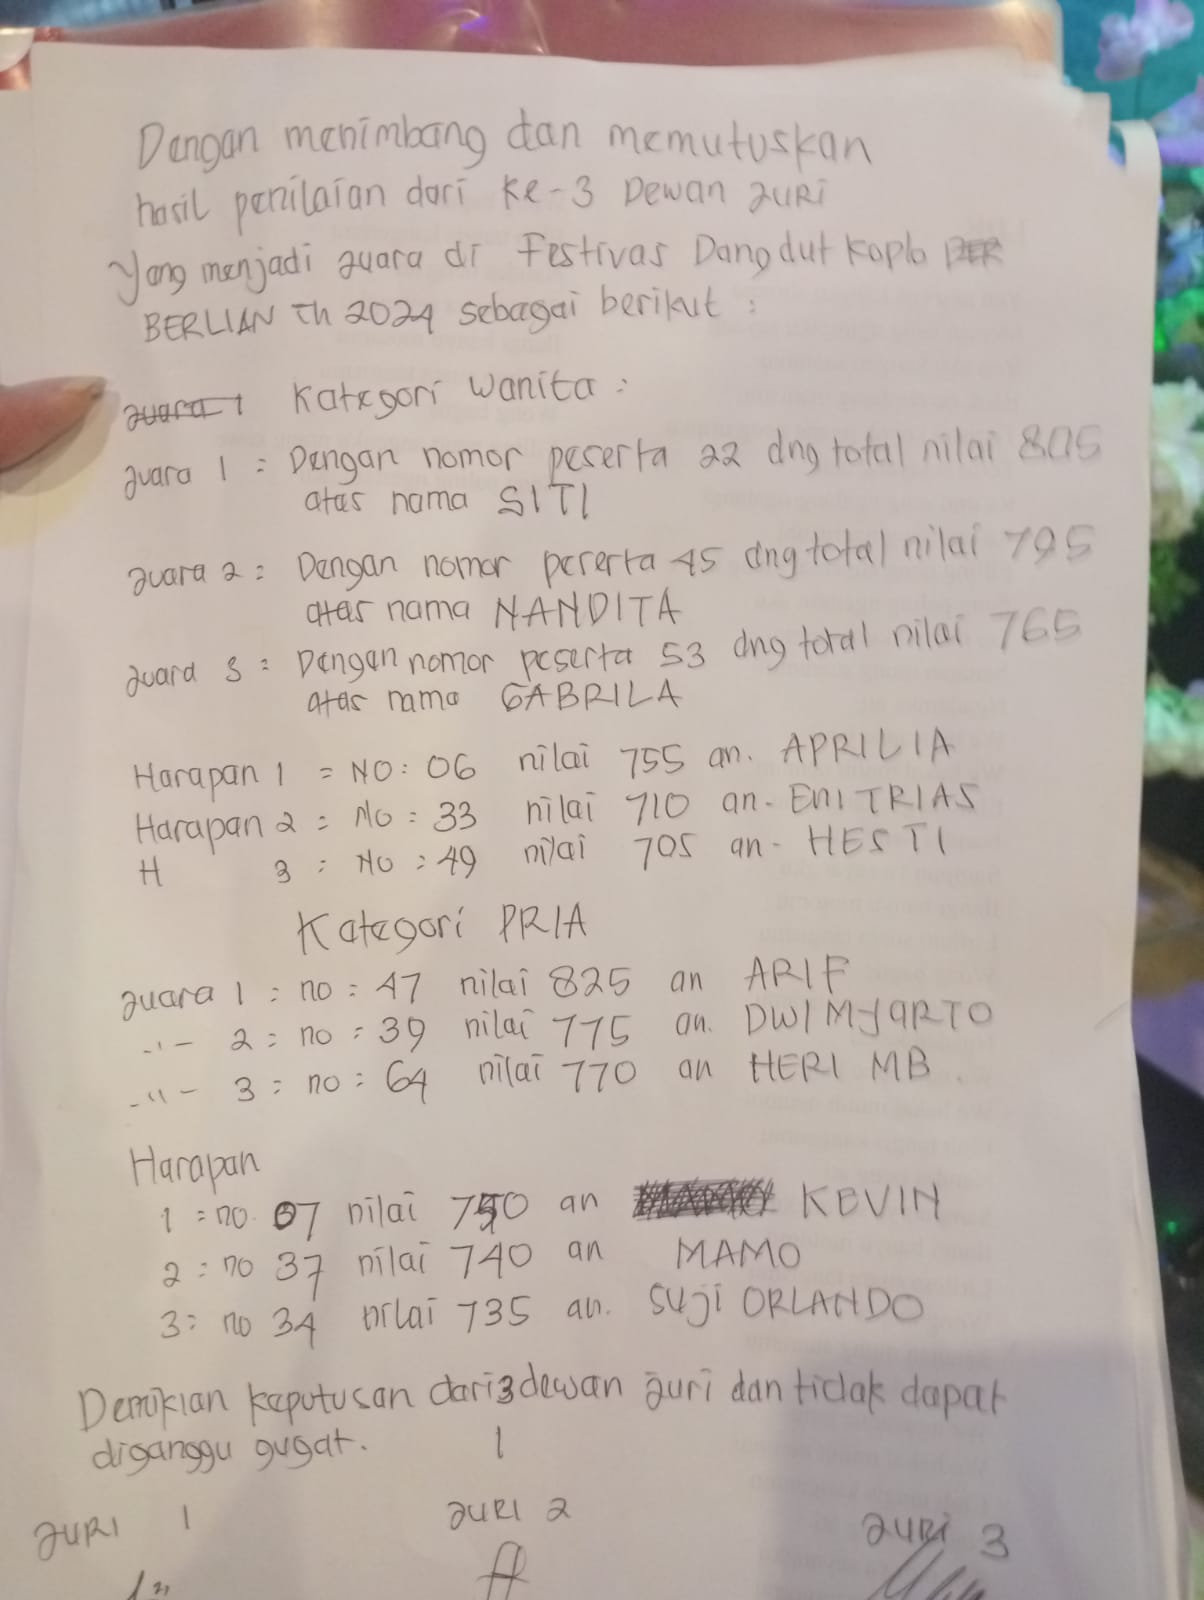 Dengan menimbang dan memutuskan
hasil penilaian dari ke-3 Dewan JURI
Yang menjadi juara di Festivas Dangdut Koplo
BERLIAN Th 2024 sebagai berikut :
juara 1 Kategori Wanita :
juara 1 = Dengan nomor peserta 22 dng total nilai 805
atas nama SITI
juara 2 = Dengan nomor peserta 45 dng total nilai 795
atas nama NANDITA
juara 3 = Dengan nomor peserta 53 dng total nilai 765
atas nama GABRILA
Harapan 1 = NO : 06 nilai 755 an. APRILIA
Harapan 2 = NO : 33 nilai 710 an. ENI TRIAS
H 3 = NO : 49 nilai 705 an - HESTI
Kategori PRIA
juara 1 = no = 47 nilai 825 an ARIF
-"- 2 = no = 39 nilai 775 an. DWI MJARTO
-"- 3 = no = 64 nilai 770 an HERI MB.
Harapan
1 = no. 07 nilai 750 an KEVIN
2 = no 37 nilai 740 an MAMO
3 = no 34 nilai 735 an. SUJI ORLANDO
Demikian keputusan dari 3 dewan juri dan tidak dapat
diganggu gugat.
JURI 1 JURI 2 JURI 3